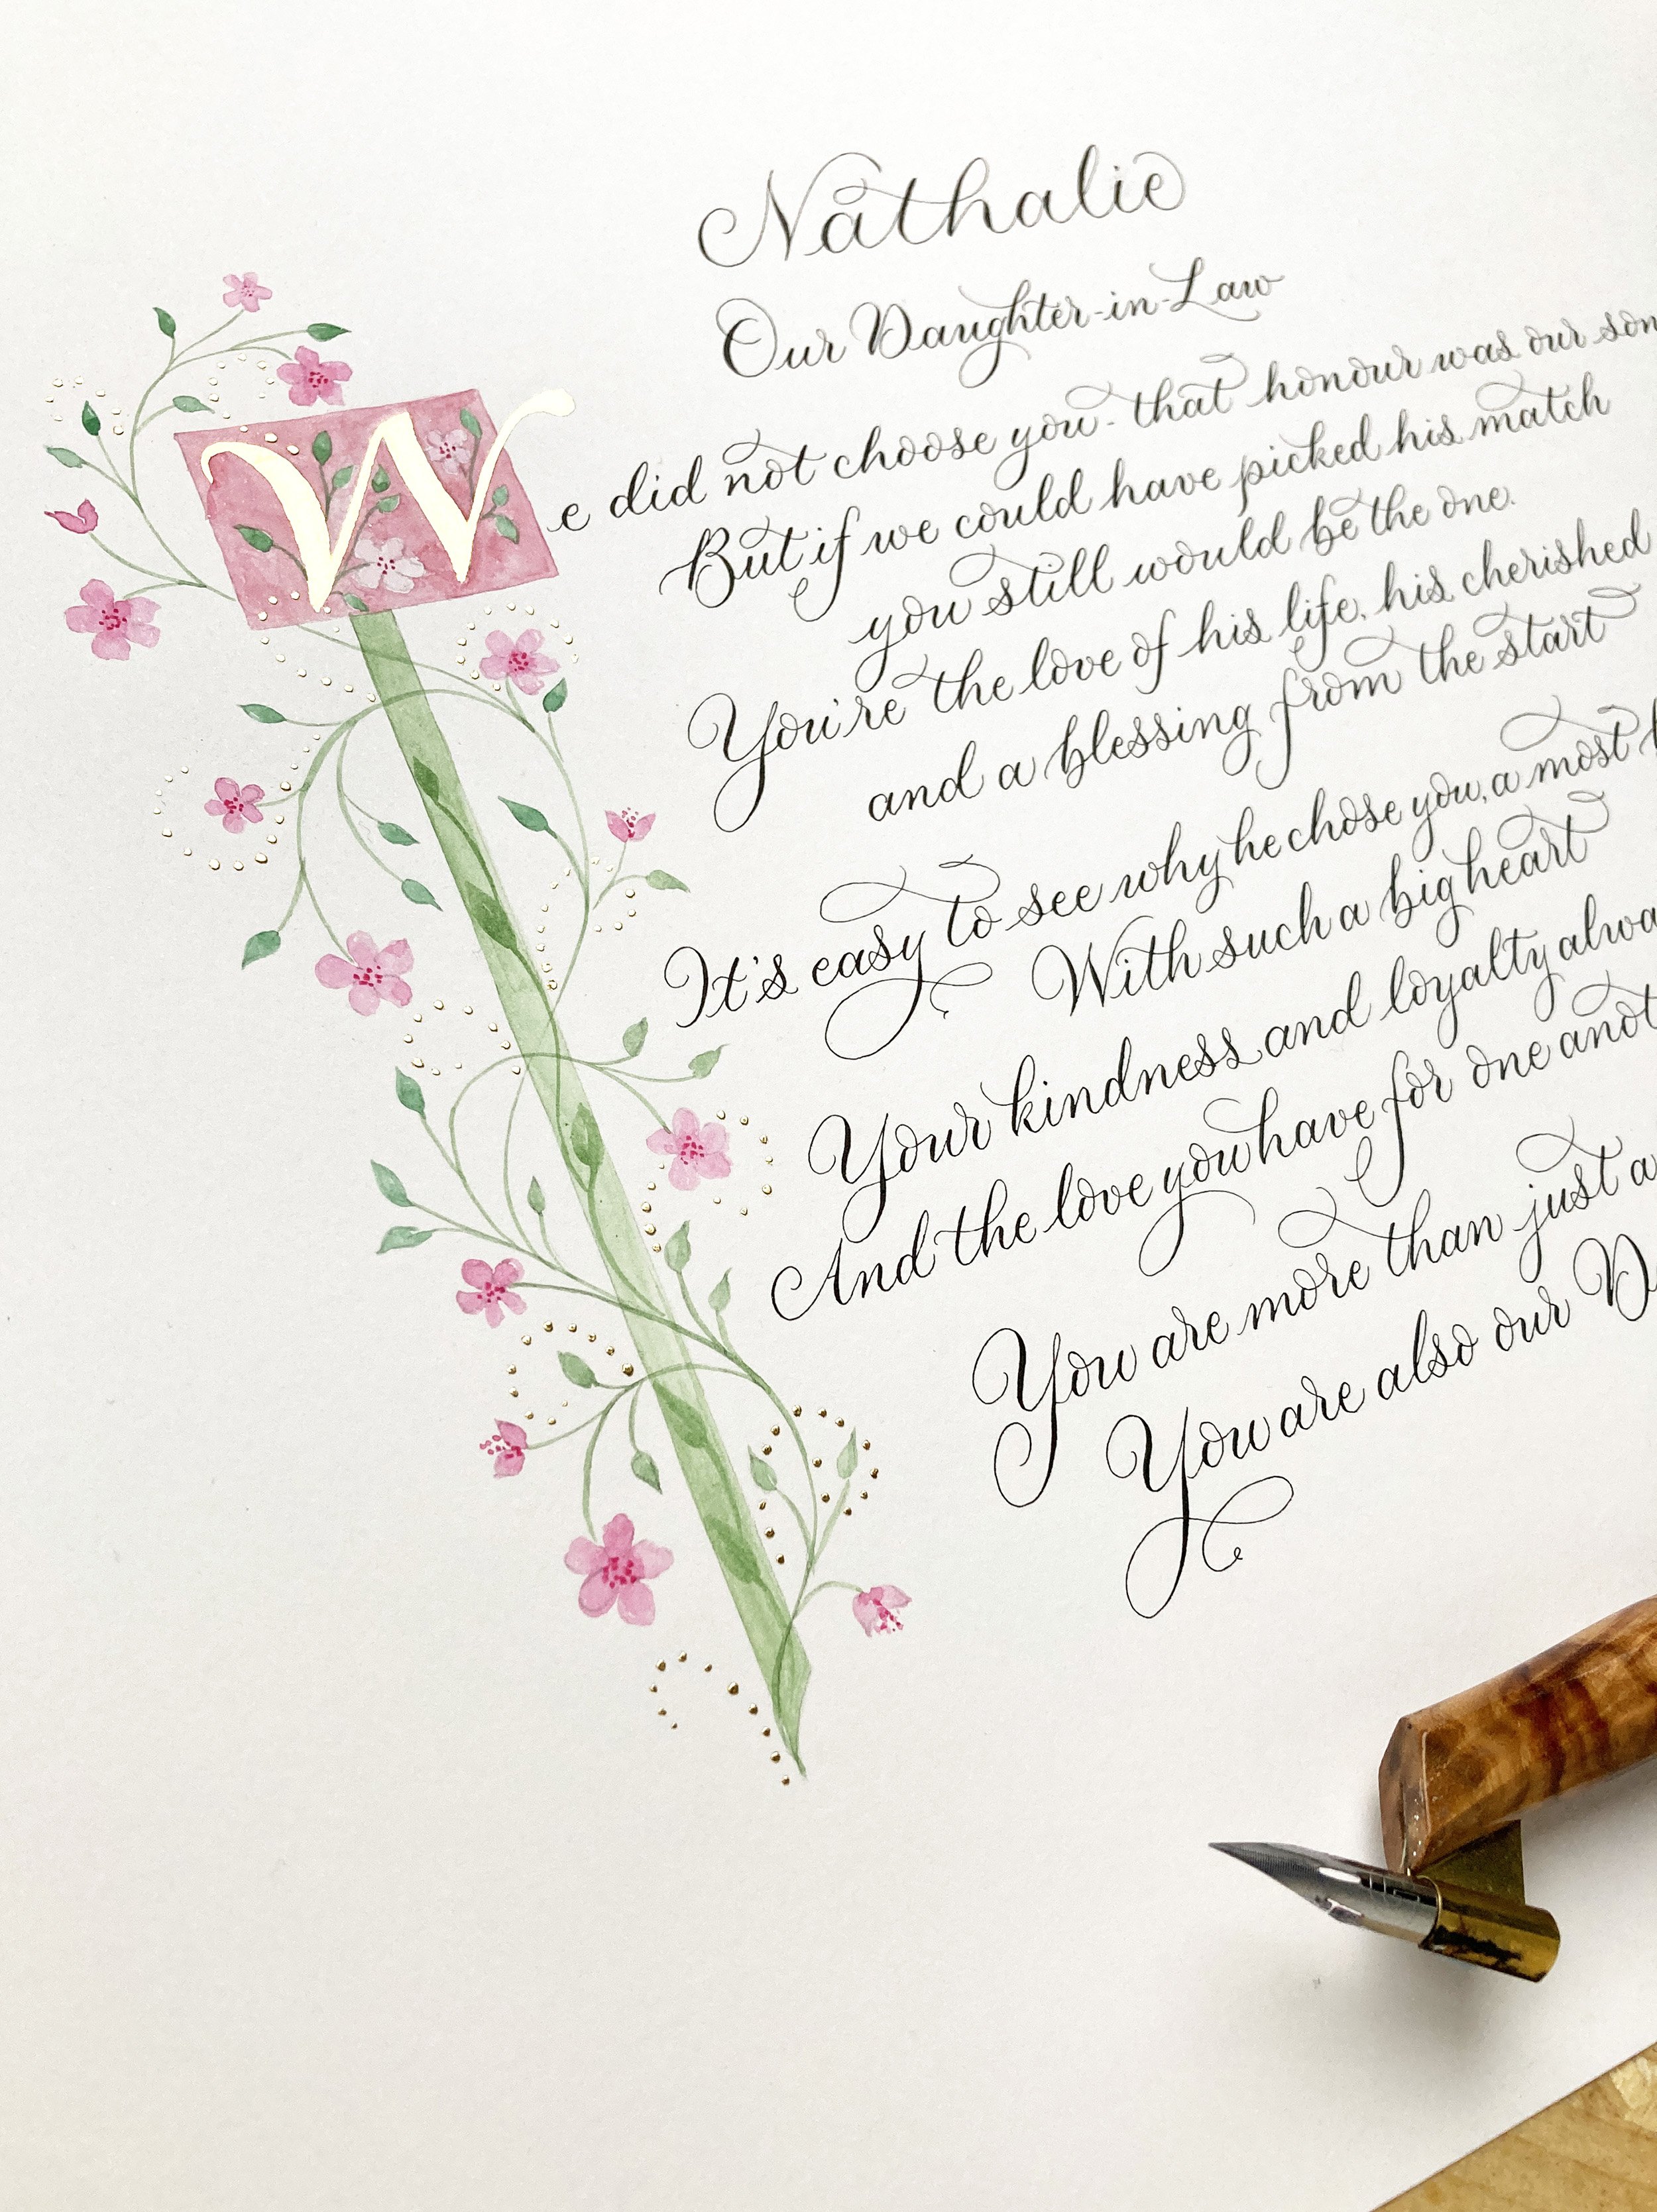 Nathalie
Our Daughter-in-Law
We did not choose you - that honour was our son
But if we could have picked his match
you still would be the one.
You're the love of his life, his cherished
and a blessing from the start
It's easy to see why he chose you, a most
With such a big heart
Your kindness and loyalty
And the love you have for one
You are more than just a
You are also our